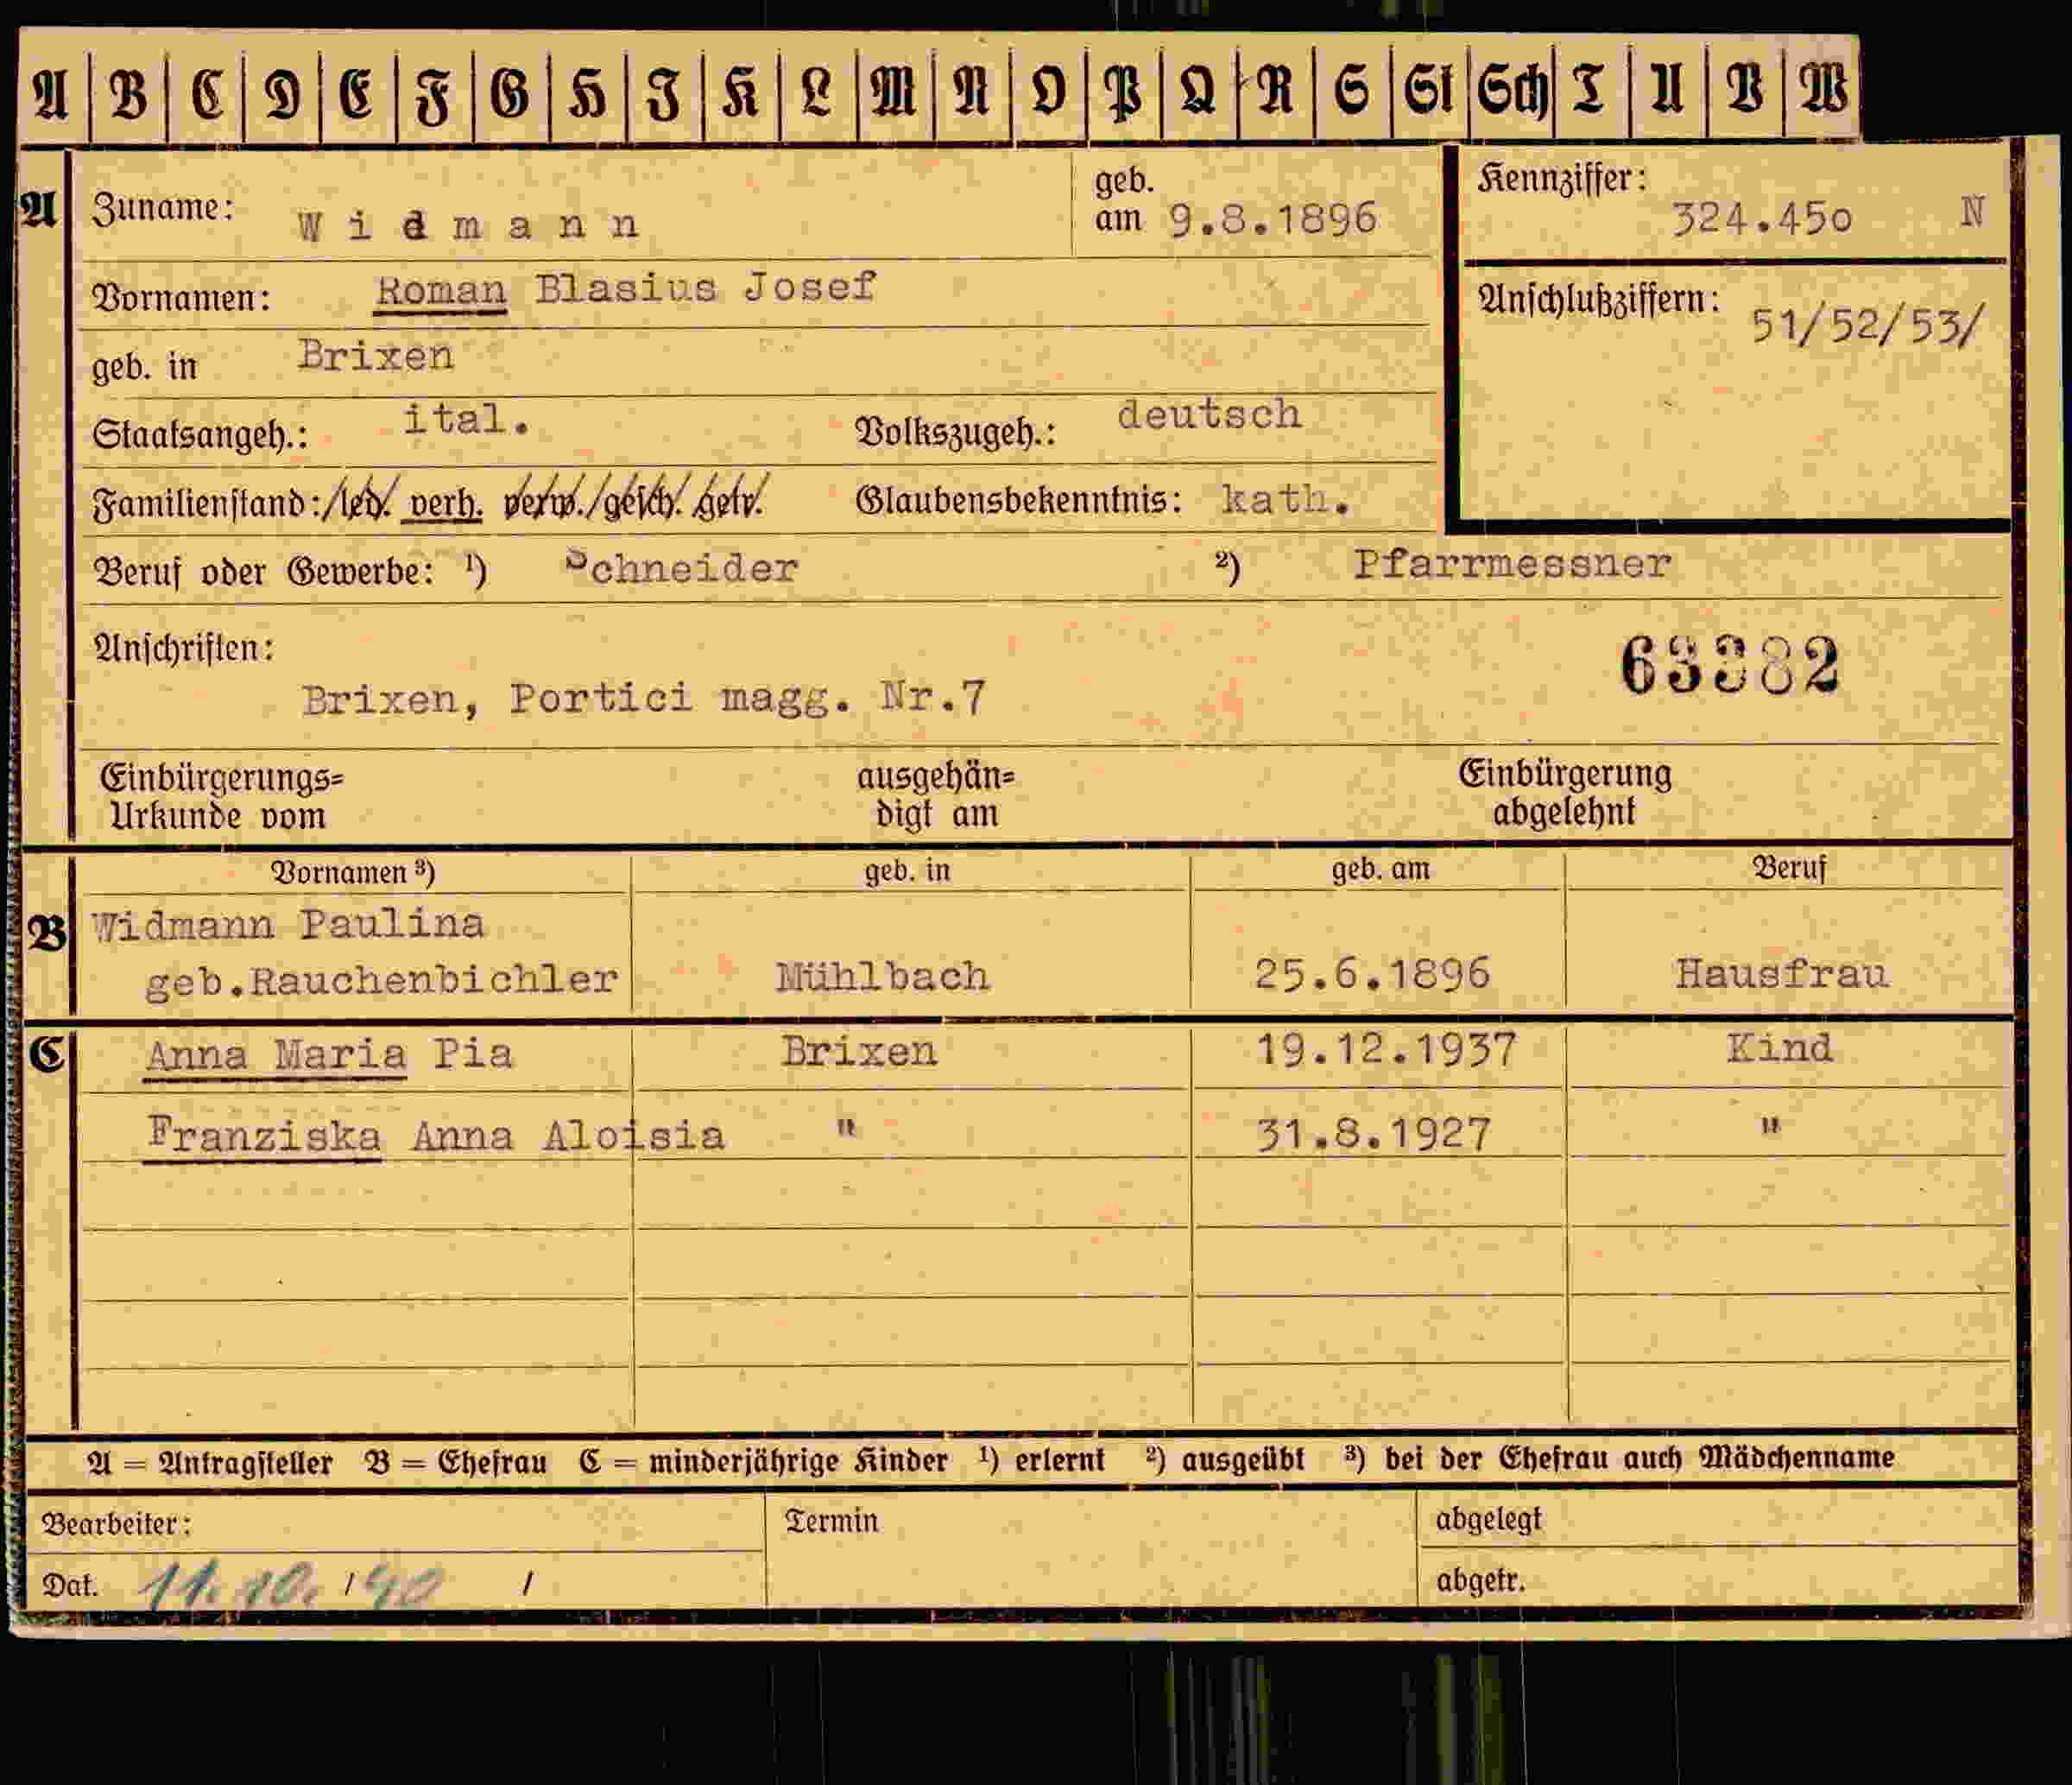 A B C D E F G H I K L M N O P Q R S St Sch T U V W
A Zuname: Widmann geb. am 9.8.1896
Kennziffer: 324.45o N
Vornamen: Roman Blasius Josef
Anschlußziffern: 51/52/53/
geb. in Brixen
Staatsangeh.: ital. Volkszugeh.: deutsch
Familienstand: led. verh. verw. gesch. getr. Glaubensbekenntnis: kath.
Beruf oder Gewerbe: 1) Schneider 2) Pfarrmessner
Anschriften:
63382
Brixen, Portici magg. Nr.7
Einbürgerungs= ausgehän= Einbürgerung
Urkunde vom digt am abgelehnt
Vornamen 3) geb. in geb. am Beruf
B Widmann Paulina
geb.Rauchenbichler Mühlbach 25.6.1896 Hausfrau
C Anna Maria Pia Brixen 19.12.1937 Kind
Franziska Anna Aloisia " 31.8.1927 "
A = Antragsteller B = Ehefrau C = minderjährige Kinder 1) erlernt 2) ausgeübt 3) bei der Ehefrau auch Mädchenname
Bearbeiter: Termin abgelegt
Dat. 11.10./40 / abgetr.